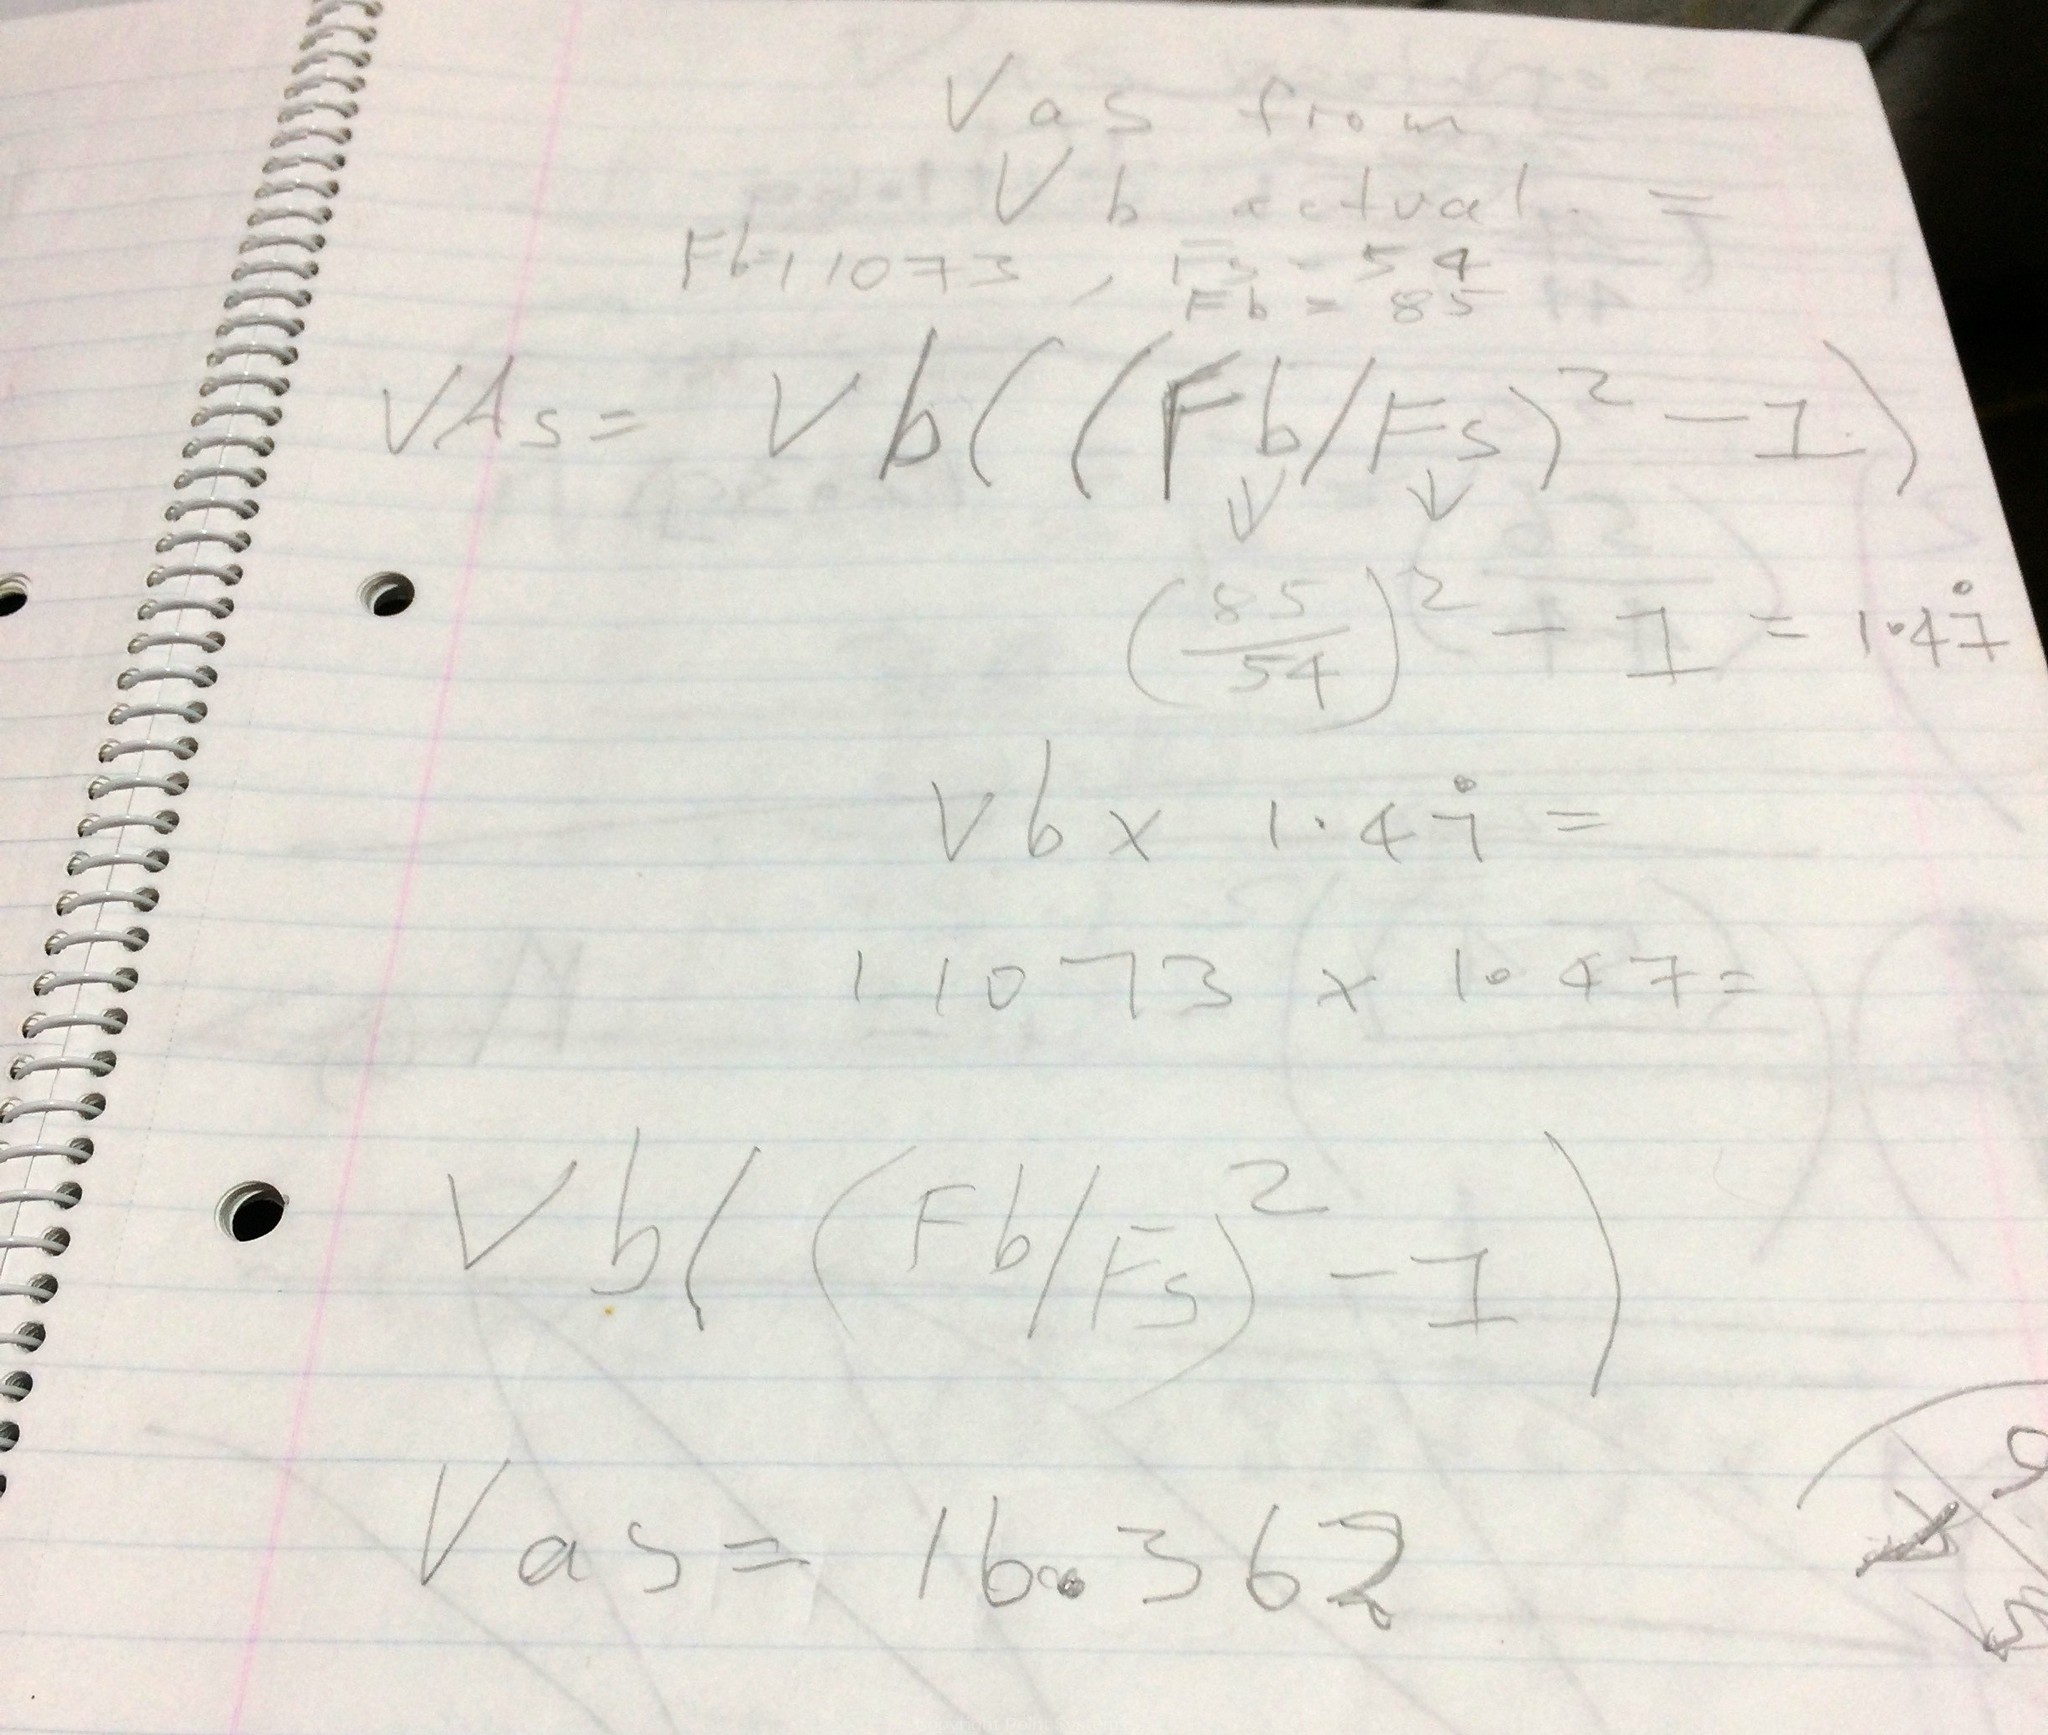 Vas from
Vb actual =
Fb=11073, Fs = 54
Fb = 85
VAs = Vb((Fb/Fs)² - 1)
(85/54)² - 1 = 1.47̇
Vb x 1.47̇ =
11073 x 1.47 =
Vb((Fb/Fs)² - 1)
Vas = 16.362